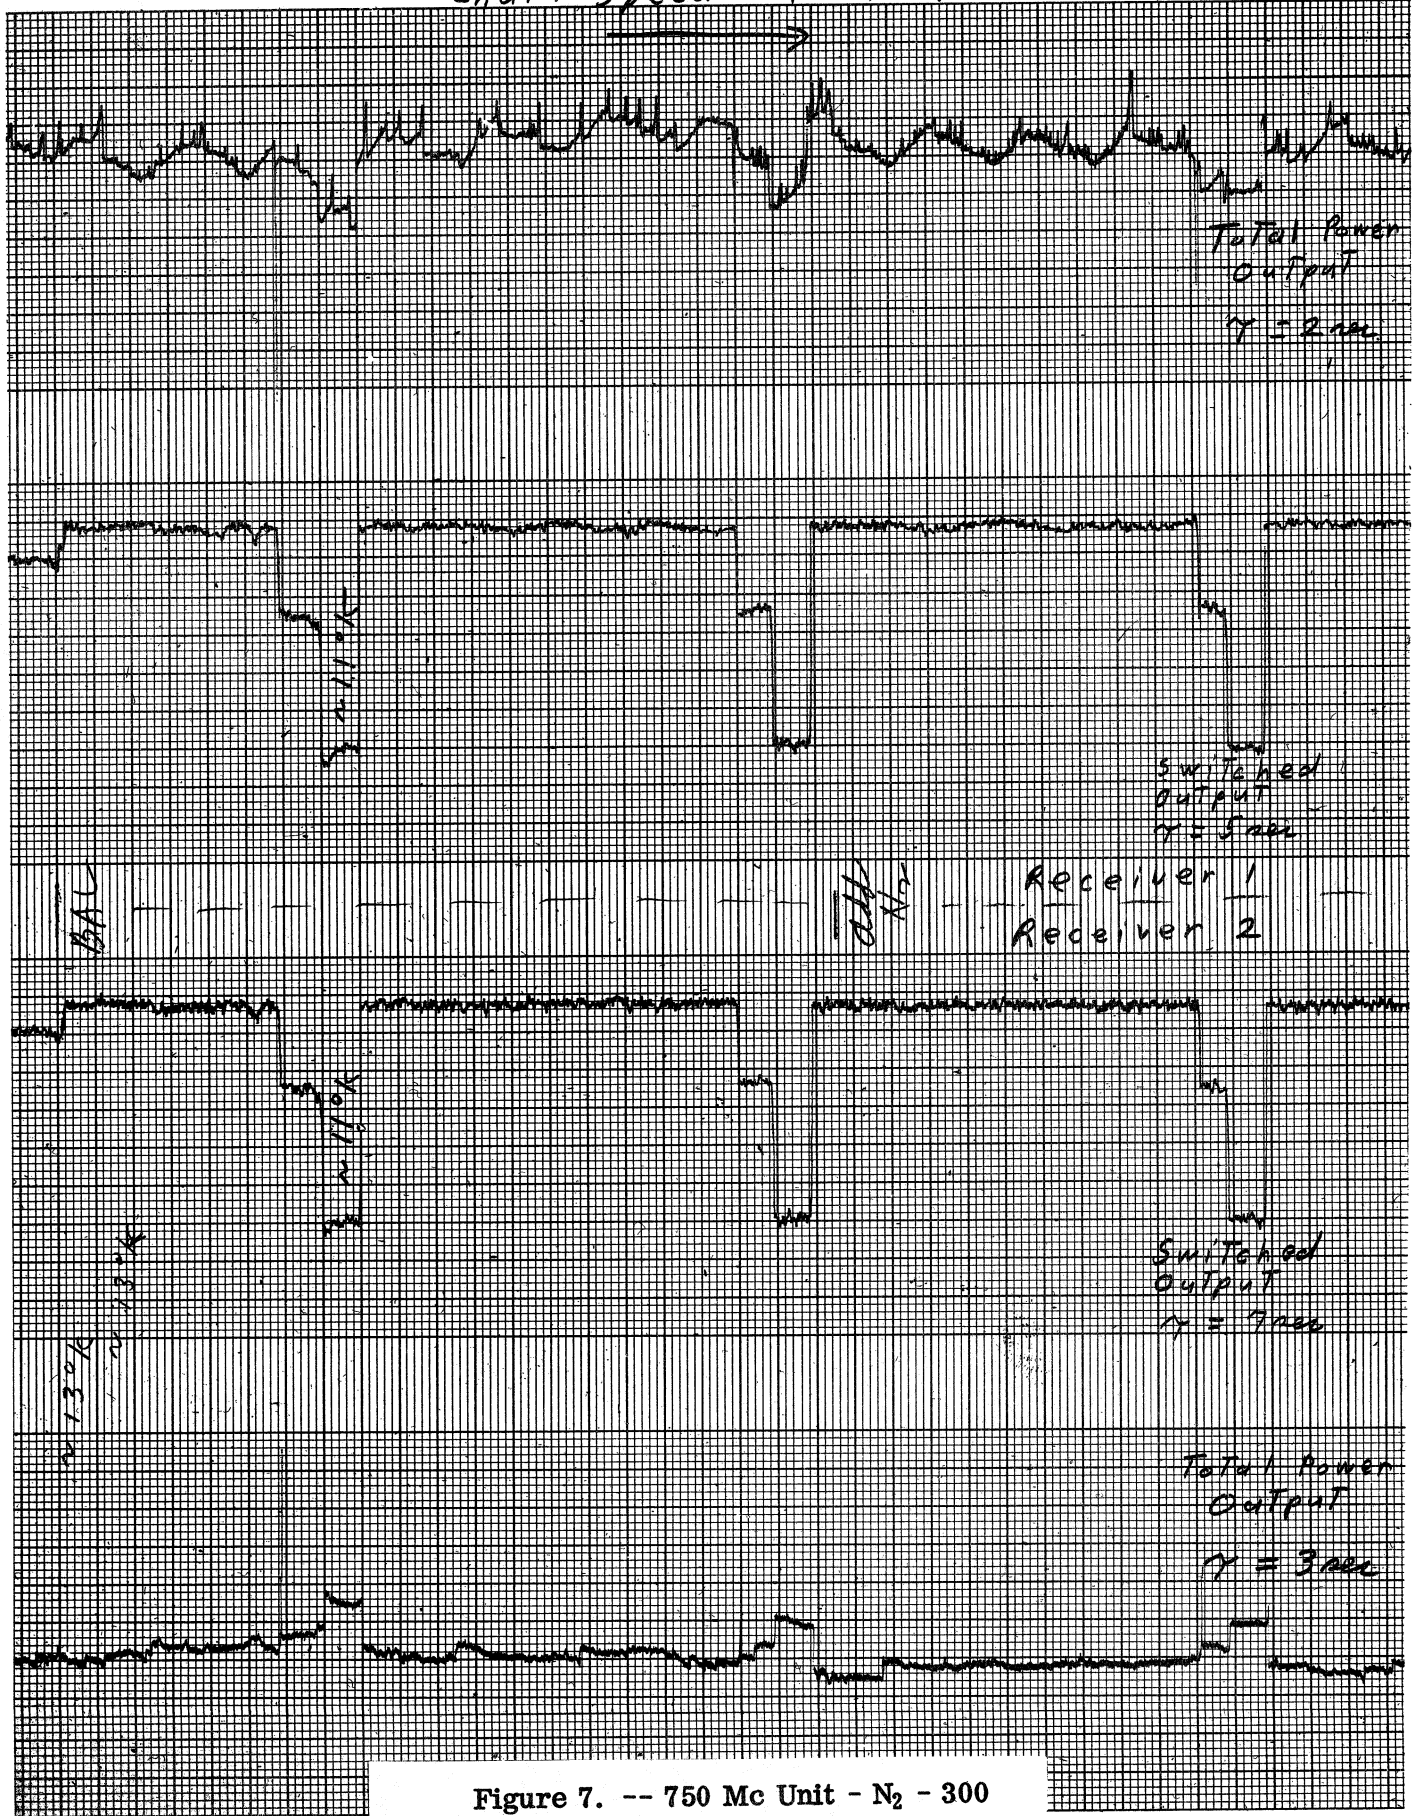 Chart Speed
Total Power
Output
τ = 2 sec.
~ 11°K
Switched
Output
τ = 5 sec
BAL
add
N₂
Receiver 1
Receiver 2
~ 11°K
~ 13°K
~ 13°K
Switched
Output
Total Power
Output
τ = 3 sec
Figure 7. -- 750 Mc Unit - N₂ - 300